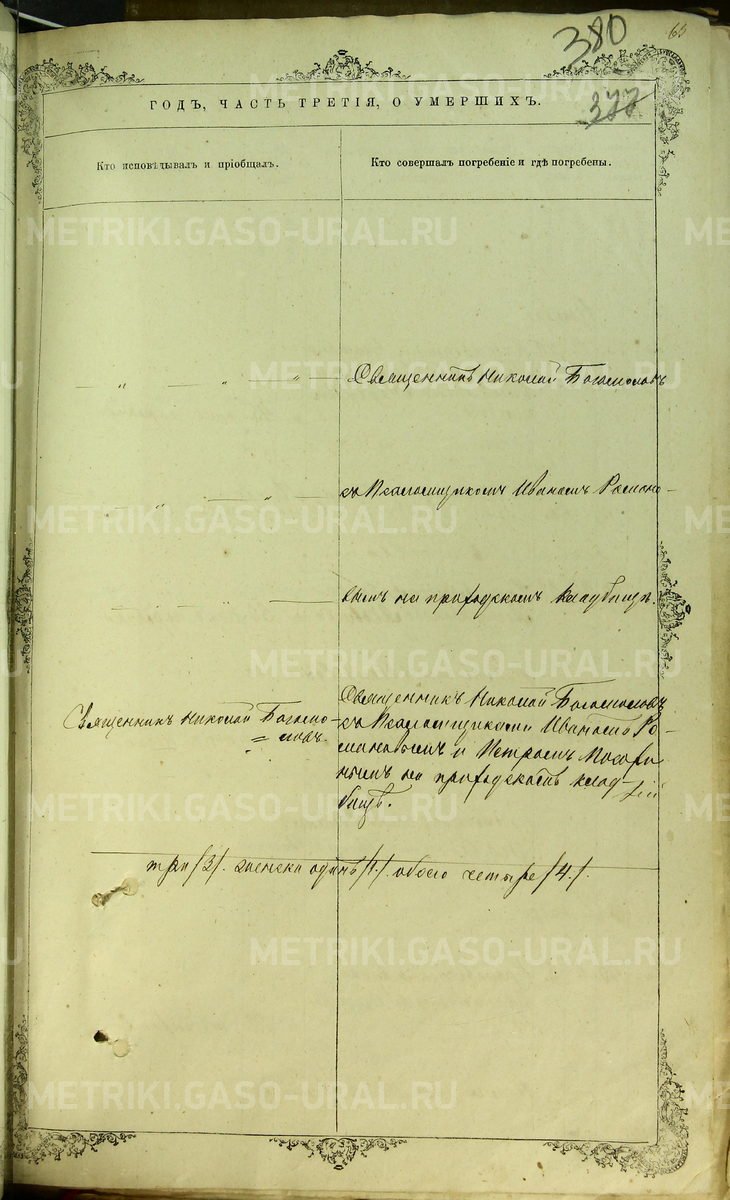 380
63
377
ГОДЪ, ЧАСТЬ ТРЕТІЯ, О УМЕРШИХЪ.
Кто исповѣдывалъ и пріобщалъ.
Кто совершалъ погребеніе и гдѣ погребены.
Священникъ Николай Богословъ
съ Псаломщикомъ Иваномъ Романо-
вымъ на приходскомъ кладбищѣ.
Священникъ Николай Богосло-
=словъ.
Священникъ Николай Богословъ
съ Псаломщиками Иваномъ Ро-
мановымъ и Петромъ
на приходскомъ клад-
бищѣ.
три /3/. женска одинъ /1/. обоего четыре /4/.
METRIKI.GASO-URAL.RU